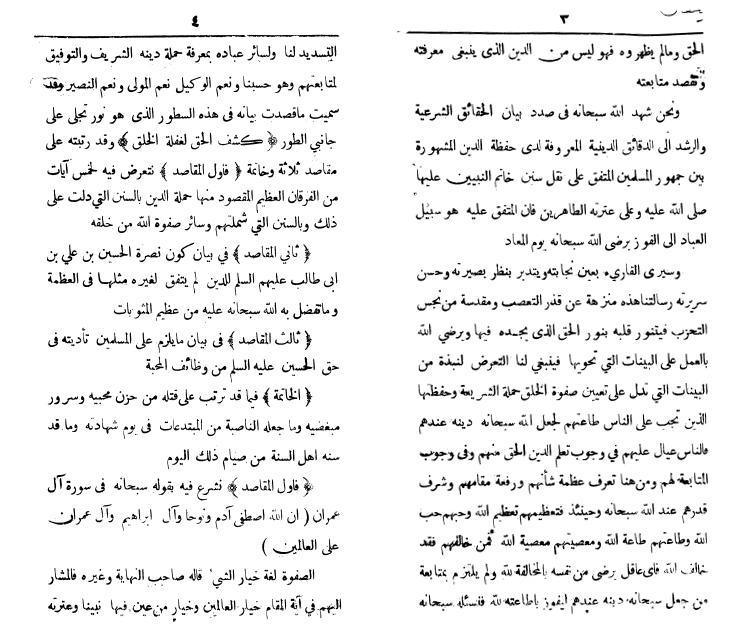 ٣
الحق ومالم يظهروه فهو ليس من الدين الذى ينبغى معرفته
وتقصد متابعته
ونحن شهد الله سبحانه فى صدد بيان الحقائق الشرعية
والرشد الى الدقائق الدينية المعروفة لدى حفظة الدين المشهورة
بين جمهور المسلمين المتفق على نقل سنن خاتم النبيين عليها
صلى الله عليه وعلى عترته الطاهرين فان المتفق عليه هو سبيل
العباد الى الفوز برضى الله سبحانه يوم المعاد
وسيرى القارىء بعين نجابته ويتدبر بنظر بصيرته وحسن
سريرته رسالتنا هذه منزهة عن قذر التعصب ومقدسة من نجس
التحزب فيتنور قلبه بنور الحق الذى يجده فيها ويرضي الله
بالعمل على البينات التي تحويها فينبغي لنا التعرض لنبذة من
البينات التي تدل على تعيين صفوة الخلق حملة الشريعة وحفظتها
الذين تجب على الناس طاعتهم لجعل الله سبحانه دينه عندهم
فالناس عيال عليهم في وجوب تعلم الدين الحق منهم وفى وجوب
المتابعة لهم ومن هنا تعرف عظمة شأنهم ورفعة مقامهم وشرف
قدرهم عند الله سبحانه وحينئذ فتعظيمهم تعظيم الله وحبهم حب
الله وطاعتهم طاعة الله ومعصيتهم معصية الله فمن خالفهم فقد
خالف الله فاى عاقل يرضى من نفسه بالمخالفة لله ولم يلتزم بمتابعة
من جعل سبحانه دينه عندهم ليفوز باطاعته لله فنسئله سبحانه
٤
التسديد لنا ولسائر عباده بمعرفة حملة دينه الشريف والتوفيق
لمتابعتهم وهو حسبنا ونعم الوكيل نعم المولى ونعم النصير وقد
سميت ماقصدت بيانه فى هذه السطور الذى هو نور تجلى على
جانبي الطور ﴿ كشف الحق لغفلة الخلق ﴾ وقد رتبته على
مقاصد ثلاثة وخاتمة ﴿ فاول المقاصد ﴾ نتعرض فيه لخمس آيات
من الفرقان العظيم المقصود منها حملة الدين بالسنن التي دلت على
ذلك وبالسنن التي شملتهم وسائر صفوة الله من خلقه
﴿ ثاني المقاصد ﴾ في بيان كون نصرة الحسين بن علي بن
ابى طالب عليهم السلم للدين لم يتفق لغيره مثلها فى العظمة
وما تفضل به الله سبحانه عليه من عظيم المثوبات
﴿ ثالث المقاصد ﴾ فى بيان مايلزم على المسلمين تأديته فى
حق الحسين عليه السلم من وظائف المحبة
﴿ الخاتمة ﴾ فيما قد ترتب على قتله من حزن محبيه وسرور
مبغضيه وما جعله الناصبة من المبتدعات فى يوم شهادته وما قد
سنه اهل السنة من صيام ذلك اليوم
﴿ فاول المقاصد ﴾ نشرع فيه بقوله سبحانه فى سورة آل
عمران ( ان الله اصطفى آدم ونوحا وآل ابراهيم وآل عمران
على العالمين )
الصفوة لغة خيار الشي' قاله صاحب النهاية وغيره فالمشار
اليهم في آية المقام خيار العالمين وخيار من عين فيها نبينا وعترته